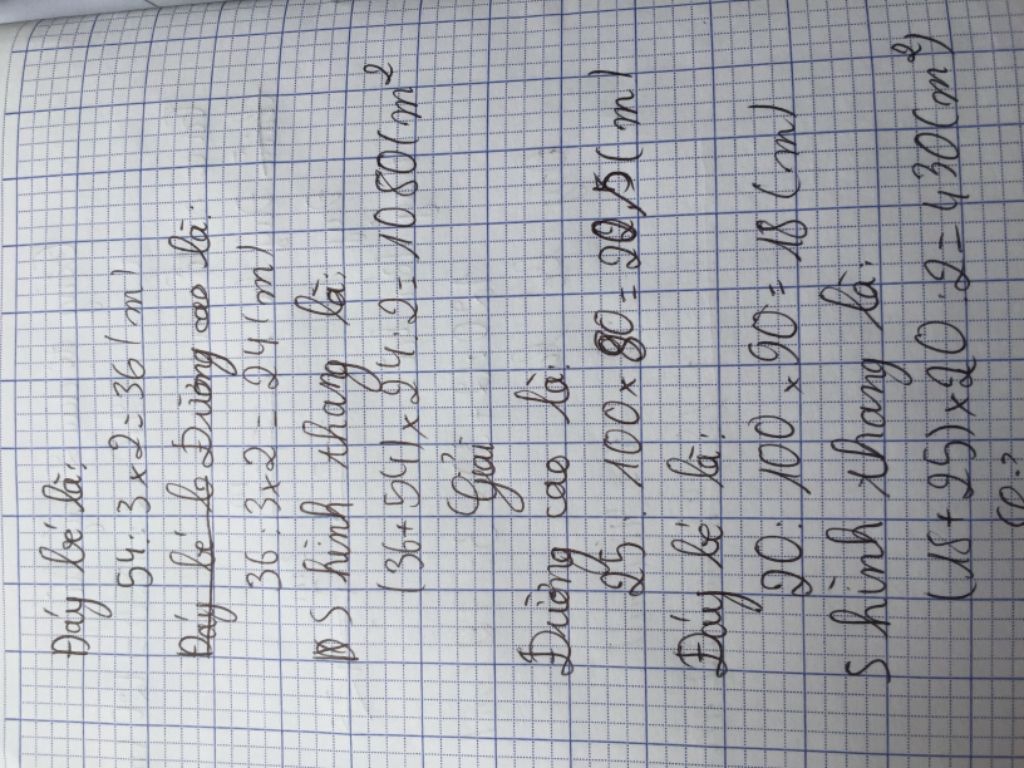 Đáy bé là:
54 : 3 x 2 = 36 ( m )
Đáy bé là Đường cao là:
36 : 3 x 2 = 24 ( m )
S hình thang là:
( 36 + 54 ) x 24 : 2 = 1080 ( m²
Giải
Đường cao là:
25 : 100 x 80 = 20 ( m )
Đáy bé là:
20 : 100 x 90 = 18 ( m )
S hình thang là:
( 18 + 25 ) x 20 : 2 = 430 ( m² )